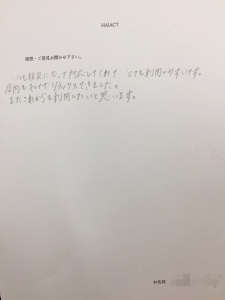 HAIACT
感想・ご意見お聞かせ下さい。
いつも親身になって対応してくれて とても利用しやすいです。
店内もキレイで リラックスできました。
またこれからも利用したいと思います。
お名前